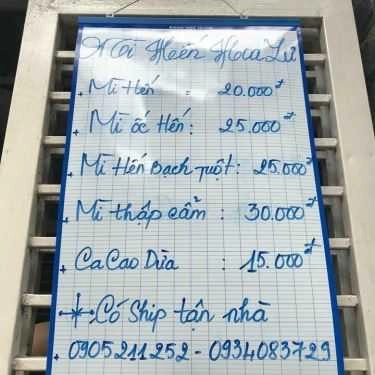 Mì Hến Hoa Lư
+ Mì Hến : 20.000đ
+ Mì ốc Hến : 25.000đ
+ Mì Hến Bạch Tuột : 25.000đ
+ Mì thập cẩm : 30.000đ
+ CaCao Dừa : 15.000đ
Có Ship tận nhà
+ 0905211252 - 0934083729